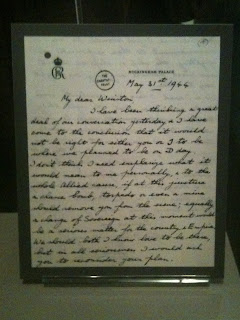 BUCKINGHAM PALACE
May 31st 1944
My dear Winston
I have been thinking a great
deal of our conversation yesterday & I have
come to the conclusion that it would
not be right for either you or I to be
where we planned to be on D day.
I don't think I need emphasize what it
would mean to me personally, & to the
whole Allied cause, if at this juncture
a chance bomb, torpedo or even a mine
should remove you from the scene; equally
a change of Sovereign at this moment would
be a serious matter for the country & Empire.
We should both I know love to be there,
but in all seriousness I would ask
you to reconsider your plan.